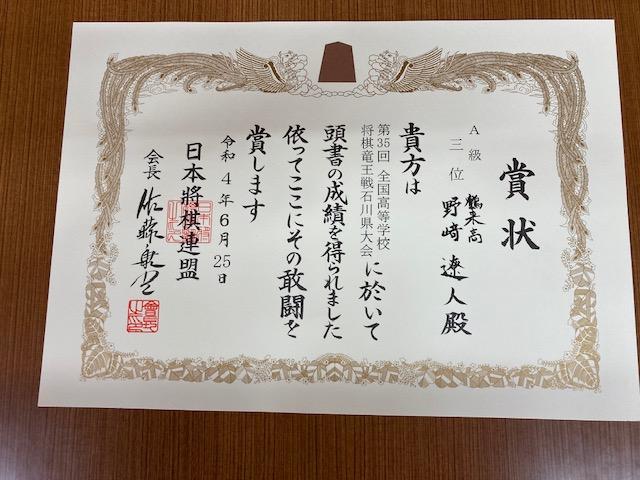 賞状
A級
三位
鶴来高
野﨑遼人殿
貴方は
第35回 全国高等学校
将棋竜王戦石川県大会
に於いて
頭書の成績を得られました
依ってここにその敢闘を
賞します
令和4年6月25日
日本將棋連盟
会長 佐藤康光